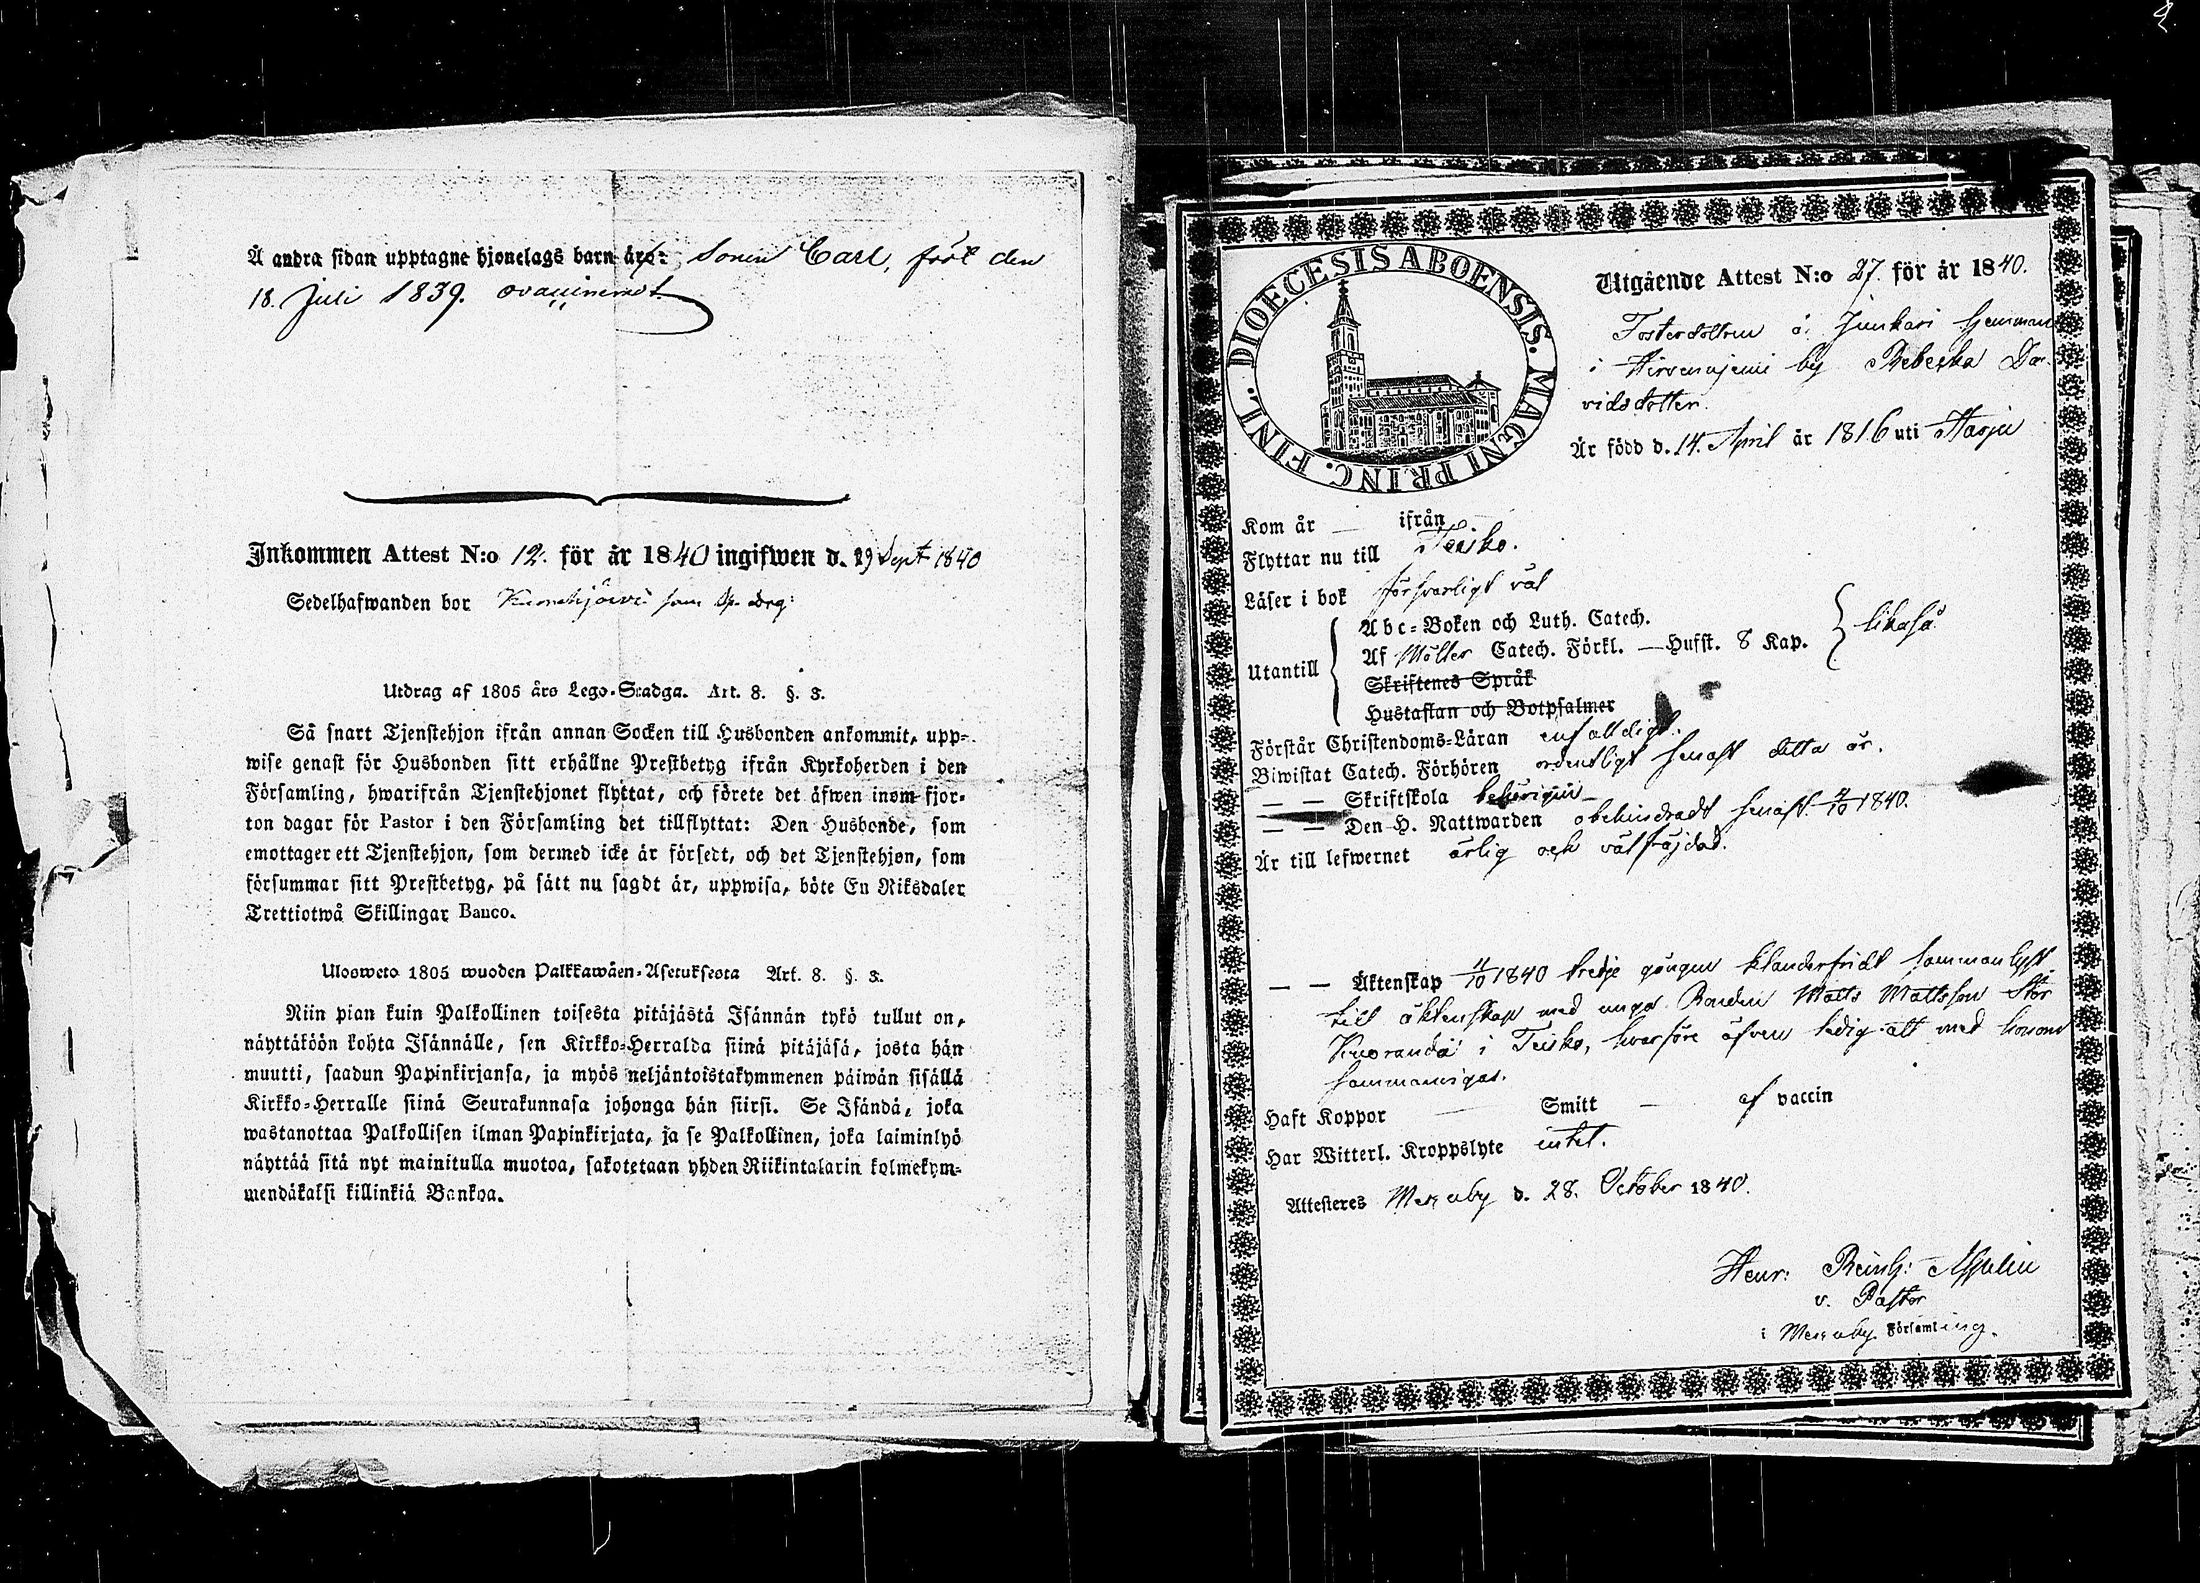 Å andra sidan upptagne hjonelags barn äro: Sonen Carl, född den
18. Juli 1839. ovaccinerad.
Inkommen Attest N:o 12. för år 1840 ingifwen d. 29 Sept 1840
Sedelhafwanden bor som
Utdrag af 1805 års Lego-Stadga. Art. 8. §. 3.
Så snart Tjenstehjon ifrån annan Socken till Husbonden ankommit, upp-
wise genast för Husbonden sitt erhållne Prestbetyg ifrån Kyrkoherden i den
Församling, hwarifrån Tjenstehjonet flyttat, och förete det äfwen inom fjor-
ton dagar för Pastor i den Församling det tillflyttat: Den Husbonde, som
emottager ett Tjenstehjon, som dermed icke är försedt, och det Tjenstehjon, som
försummar sitt Prestbetyg, på sätt nu sagdt är, uppwisa, böte En Riksdaler
Trettiotwå Skillingar Banco.
Ulosweto 1805 wuoden Palkkawäen-Asetuksesta Art. 8. §. 3.
Niin pian kuin Palkollinen toisesta pitäjästä Isännän tykö tullut on,
näyttäköön kohta Isännälle, sen Kirkko-Herralda siinä pitäjäsä, josta hän
muutti, saadun Papinkirjansa, ja myös neljäntoistakymmenen päiwän sisällä
Kirkko-Herralle siinä Seurakunnasa johonga hän siirsi. Se Isändä, joka
wastanottaa Palkollisen ilman Papinkirjata, ja se Palkollinen, joka laiminlyö
näyttää sitä nyt mainitulla muotoa, sakotetaan yhden Riikintalarin kolmekym-
mendäkaksi killinkiä Bankoa.
DIOECESIS ABOENSIS. MAGNI PRINC. FINL.
Utgående Attest N:o 27. för år 1840.
Fosterdottren å Junkari hemman
i Hirvenniemi by Rebecka Da-
vidsdotter.
Är född d. 14. April år 1816 uti Harju
Kom år — ifrån —
Flyttar nu till Teisko.
Läser i bok försvarligt väl
Utantill
Abc-Boken och Luth. Catech.
Af Möller Catech. Förkl. — Hufst. 8 Kap.
likaså.
Skriftenes Språk
Hustaflan och Botpsalmer
Förstår Christendoms-Läran enfalldigt.
Biwistat Catech. Förhören ordentligt senast detta år.
— — Skriftskola behörigen
— — Den H. Nattwarden obehindradt senast 4/10 1840.
Är till lefwernet ärlig och välfräjdad.
— — Äktenskap 11/10 1840 tredje gången klanderfridt sammanlyst
till äktenskap med unga Bonden Matts Mattsson Stor
Kuoranda i Teisko, hvarföre äfven ledig att med honom
sammanvigas.
Haft Koppor — Smitt — af vaccin
Har Witterl. Kroppslyte intet.
Attesteres Messuby d. 28. October 1840.
Henr: Reinh: Aspelin
v. Pastor
i Messuby Församling.